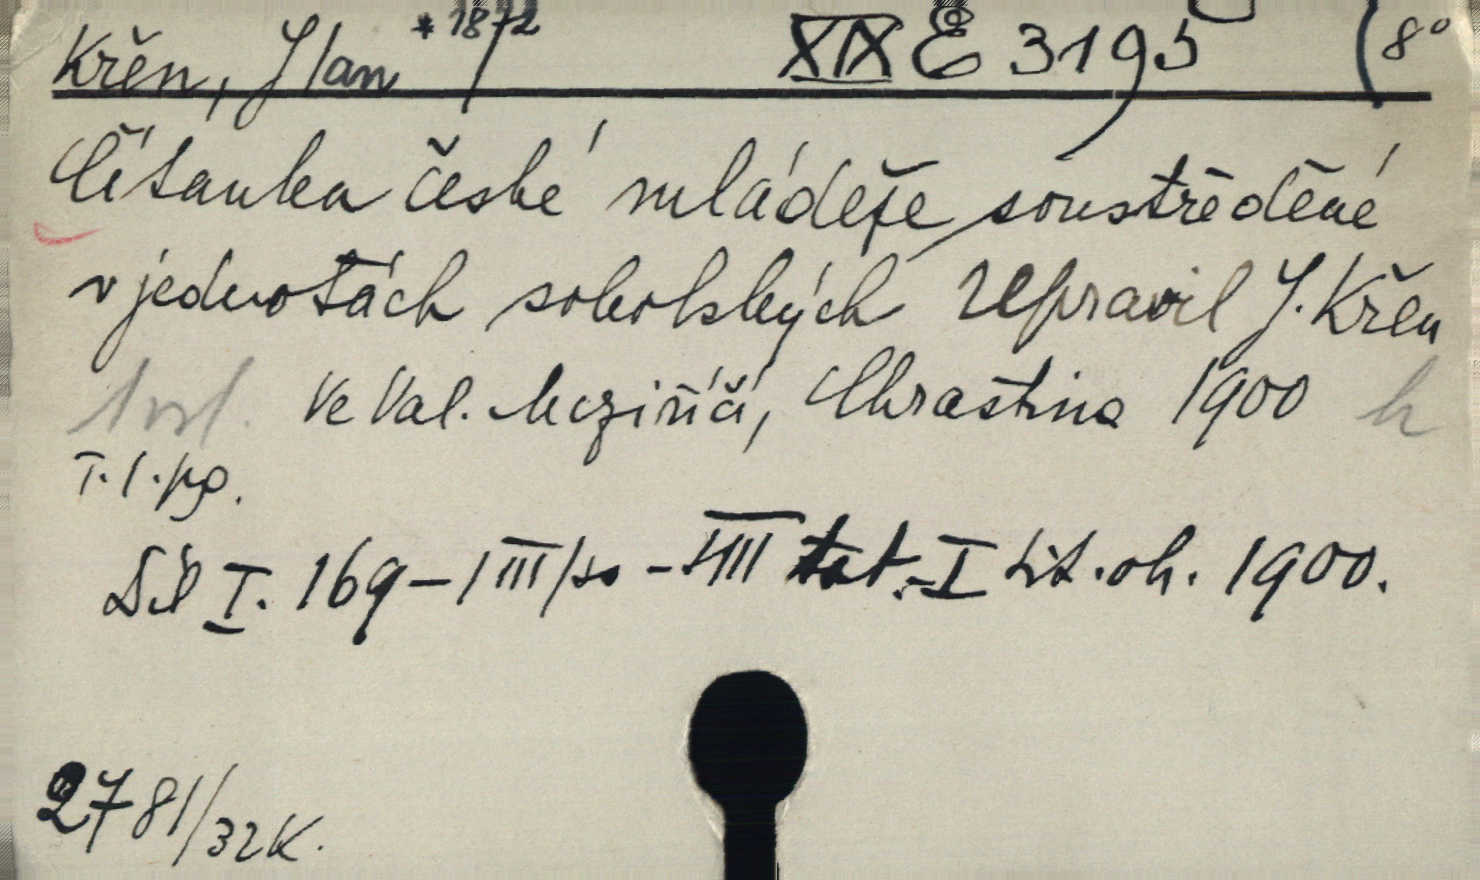 Křen, J/an *1872 XIX E 3195 8°
Čítanka české mládeže soustředěné
v jednotách sokolských Upravil J. Křen
1 sv. Ve Val. Meziříčí, Chrastina 1900 h
T. I. pg.
Díl I. 169 – I III/so – III tab. – I tit. ob. 1900.
2781/32K.